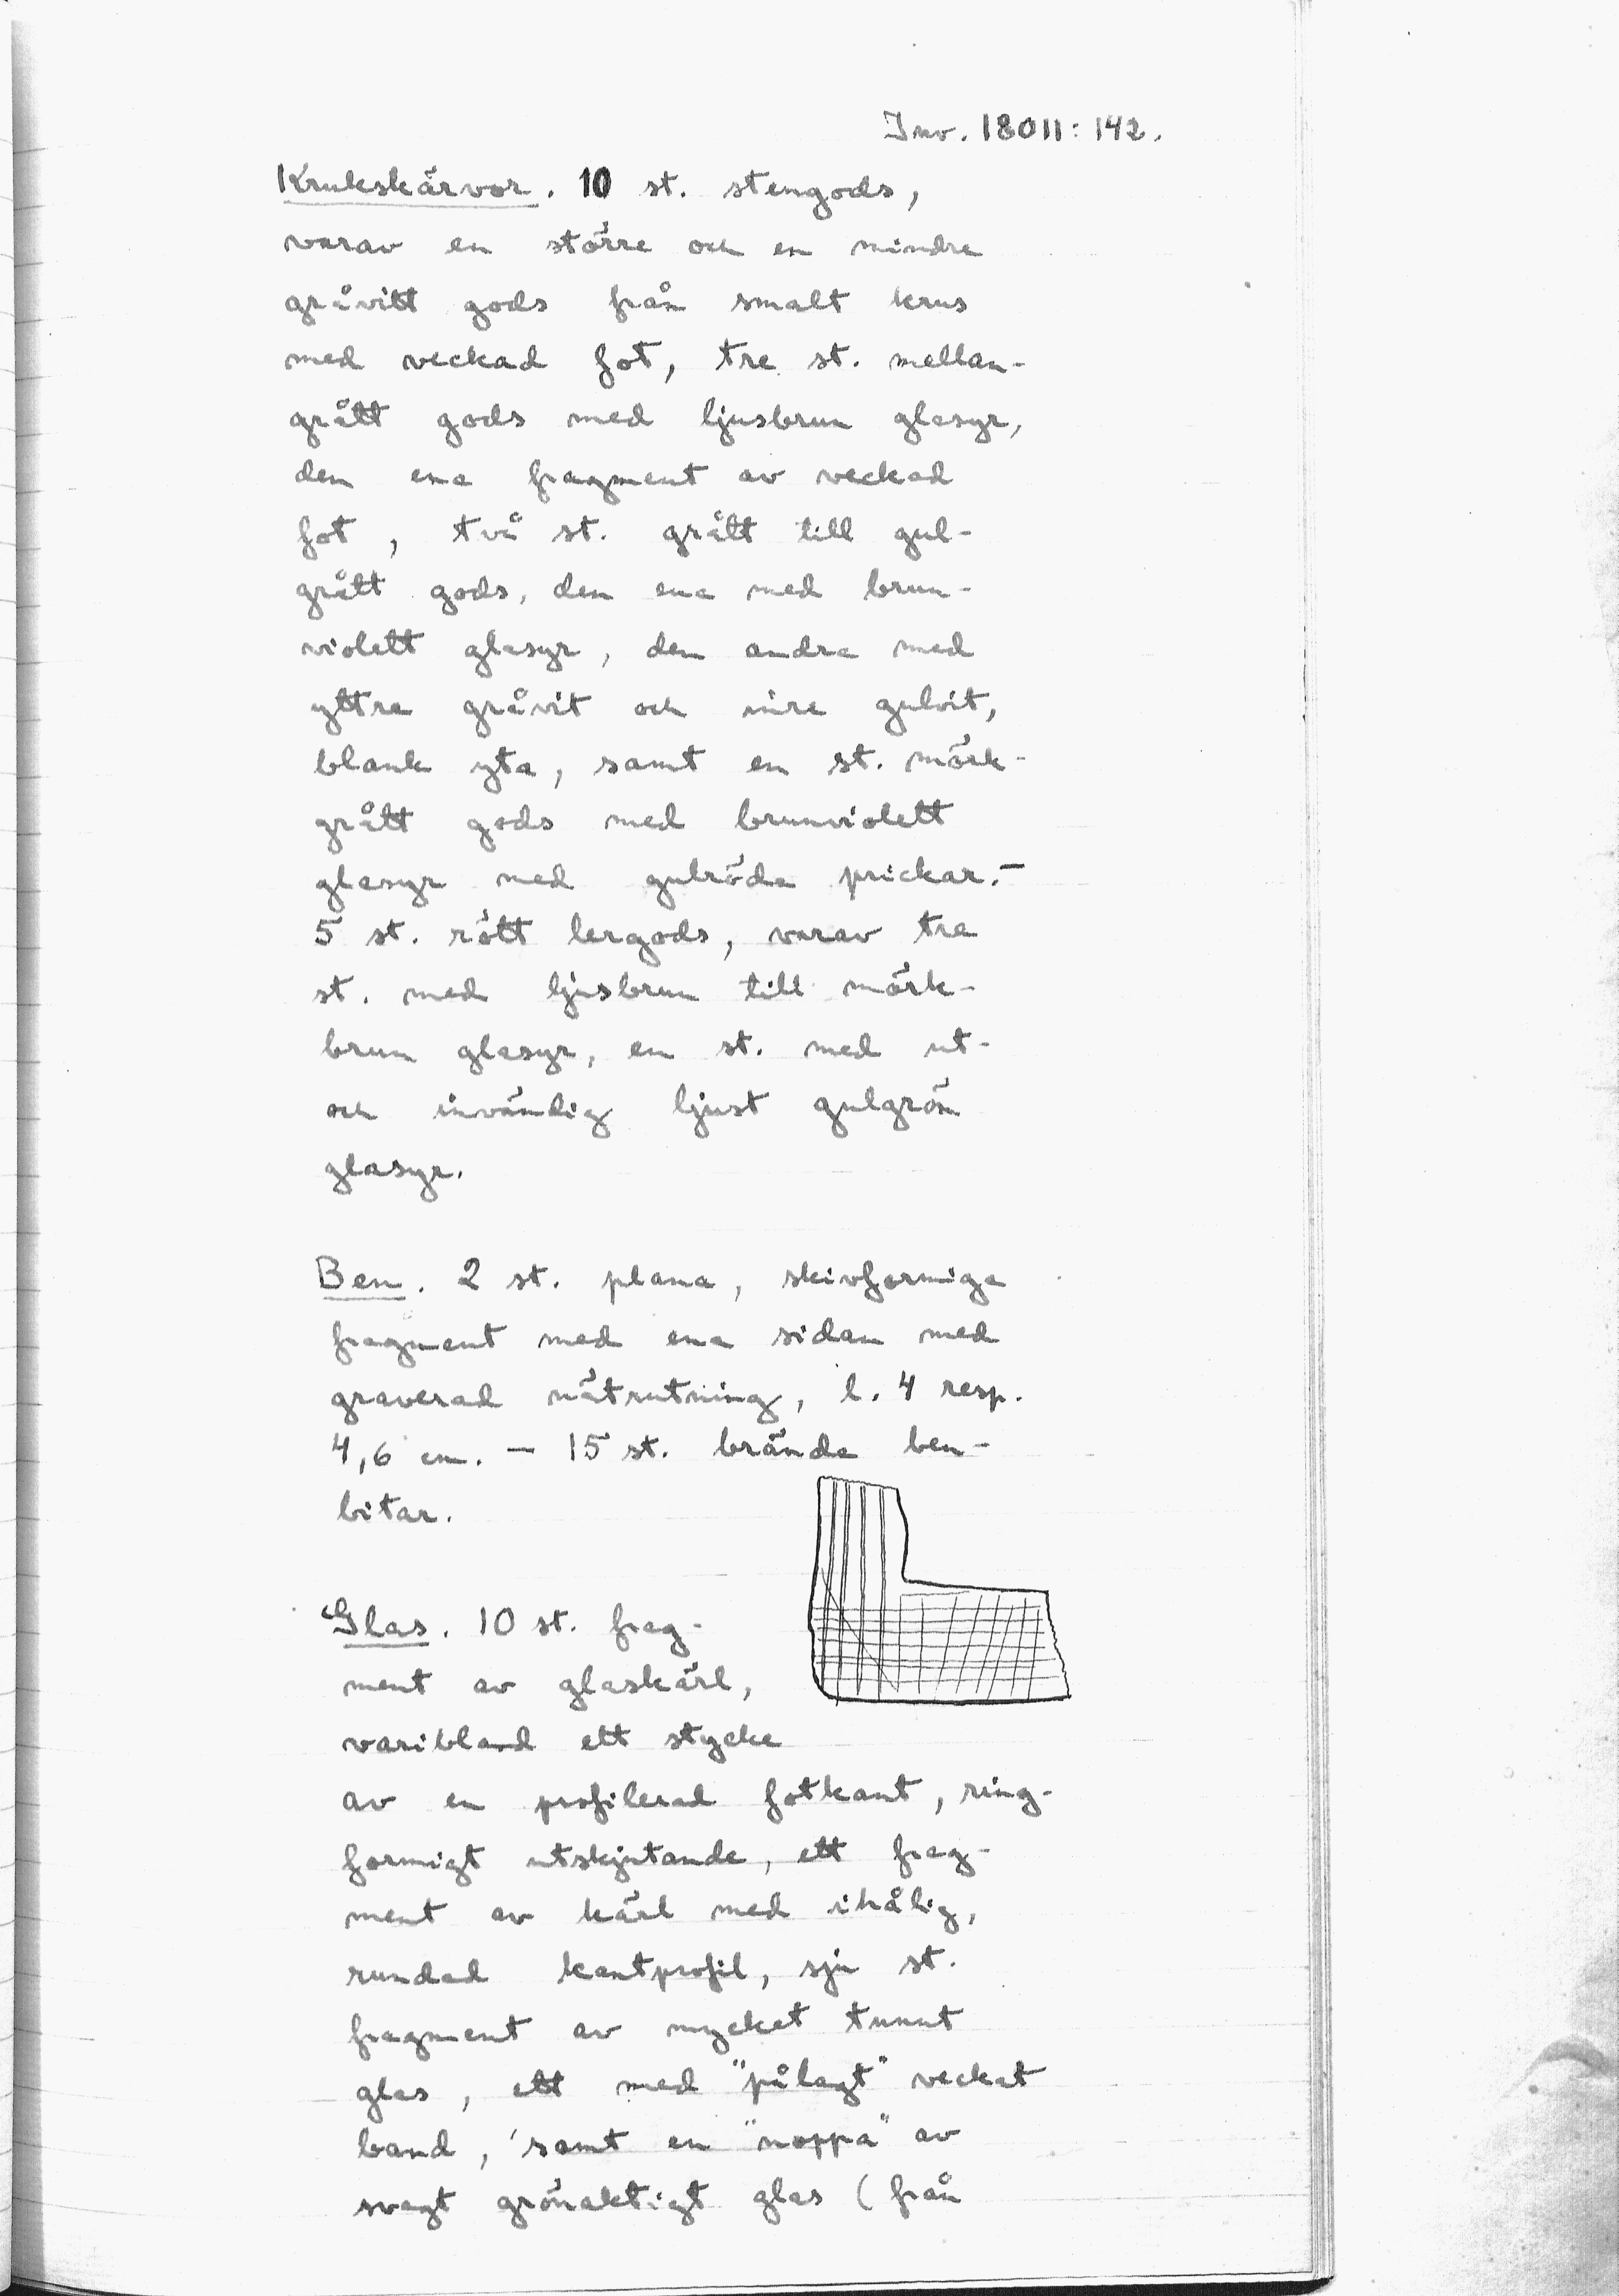 Inv. 18011:142.
Krukskärvor. 10 st. stengods,
varav en större och en mindre
gråvitt gods från smalt krus
med veckad fot, tre st. mellan-
grått gods med ljusbrun glasyr,
den ena fragment av veckad
fot, två st. grått till gul-
grått gods, den ena med brun-
violett glasyr, den andra med
yttre gråvit och inre gulvit,
blank yta, samt en st. mörk-
grått gods med brunviolett
glasyr med gulröda prickar.-
5 st. rött lergods, varav tre
st. med ljusbrun till mörk-
brun glasyr, en st. med ut-
och invändig ljust gulgrön
glasyr.
Ben. 2 st. plana, skivformiga
fragment med ena sidan med
graverad nätrutning, l. 4 resp.
4,6 cm. - 15 st. brända ben-
bitar.
Glas. 10 st. frag-
ment av glaskärl,
varibland ett stycke
av en profilerad fotkant, ring-
formigt utskjutande, ett frag-
ment av kärl med ihålig,
rundad kantprofil, sju st.
fragment av mycket tunnt
glas, ett med "pålagt" veckat
band, samt en "noppa" av
svagt grönaktigt glas (från